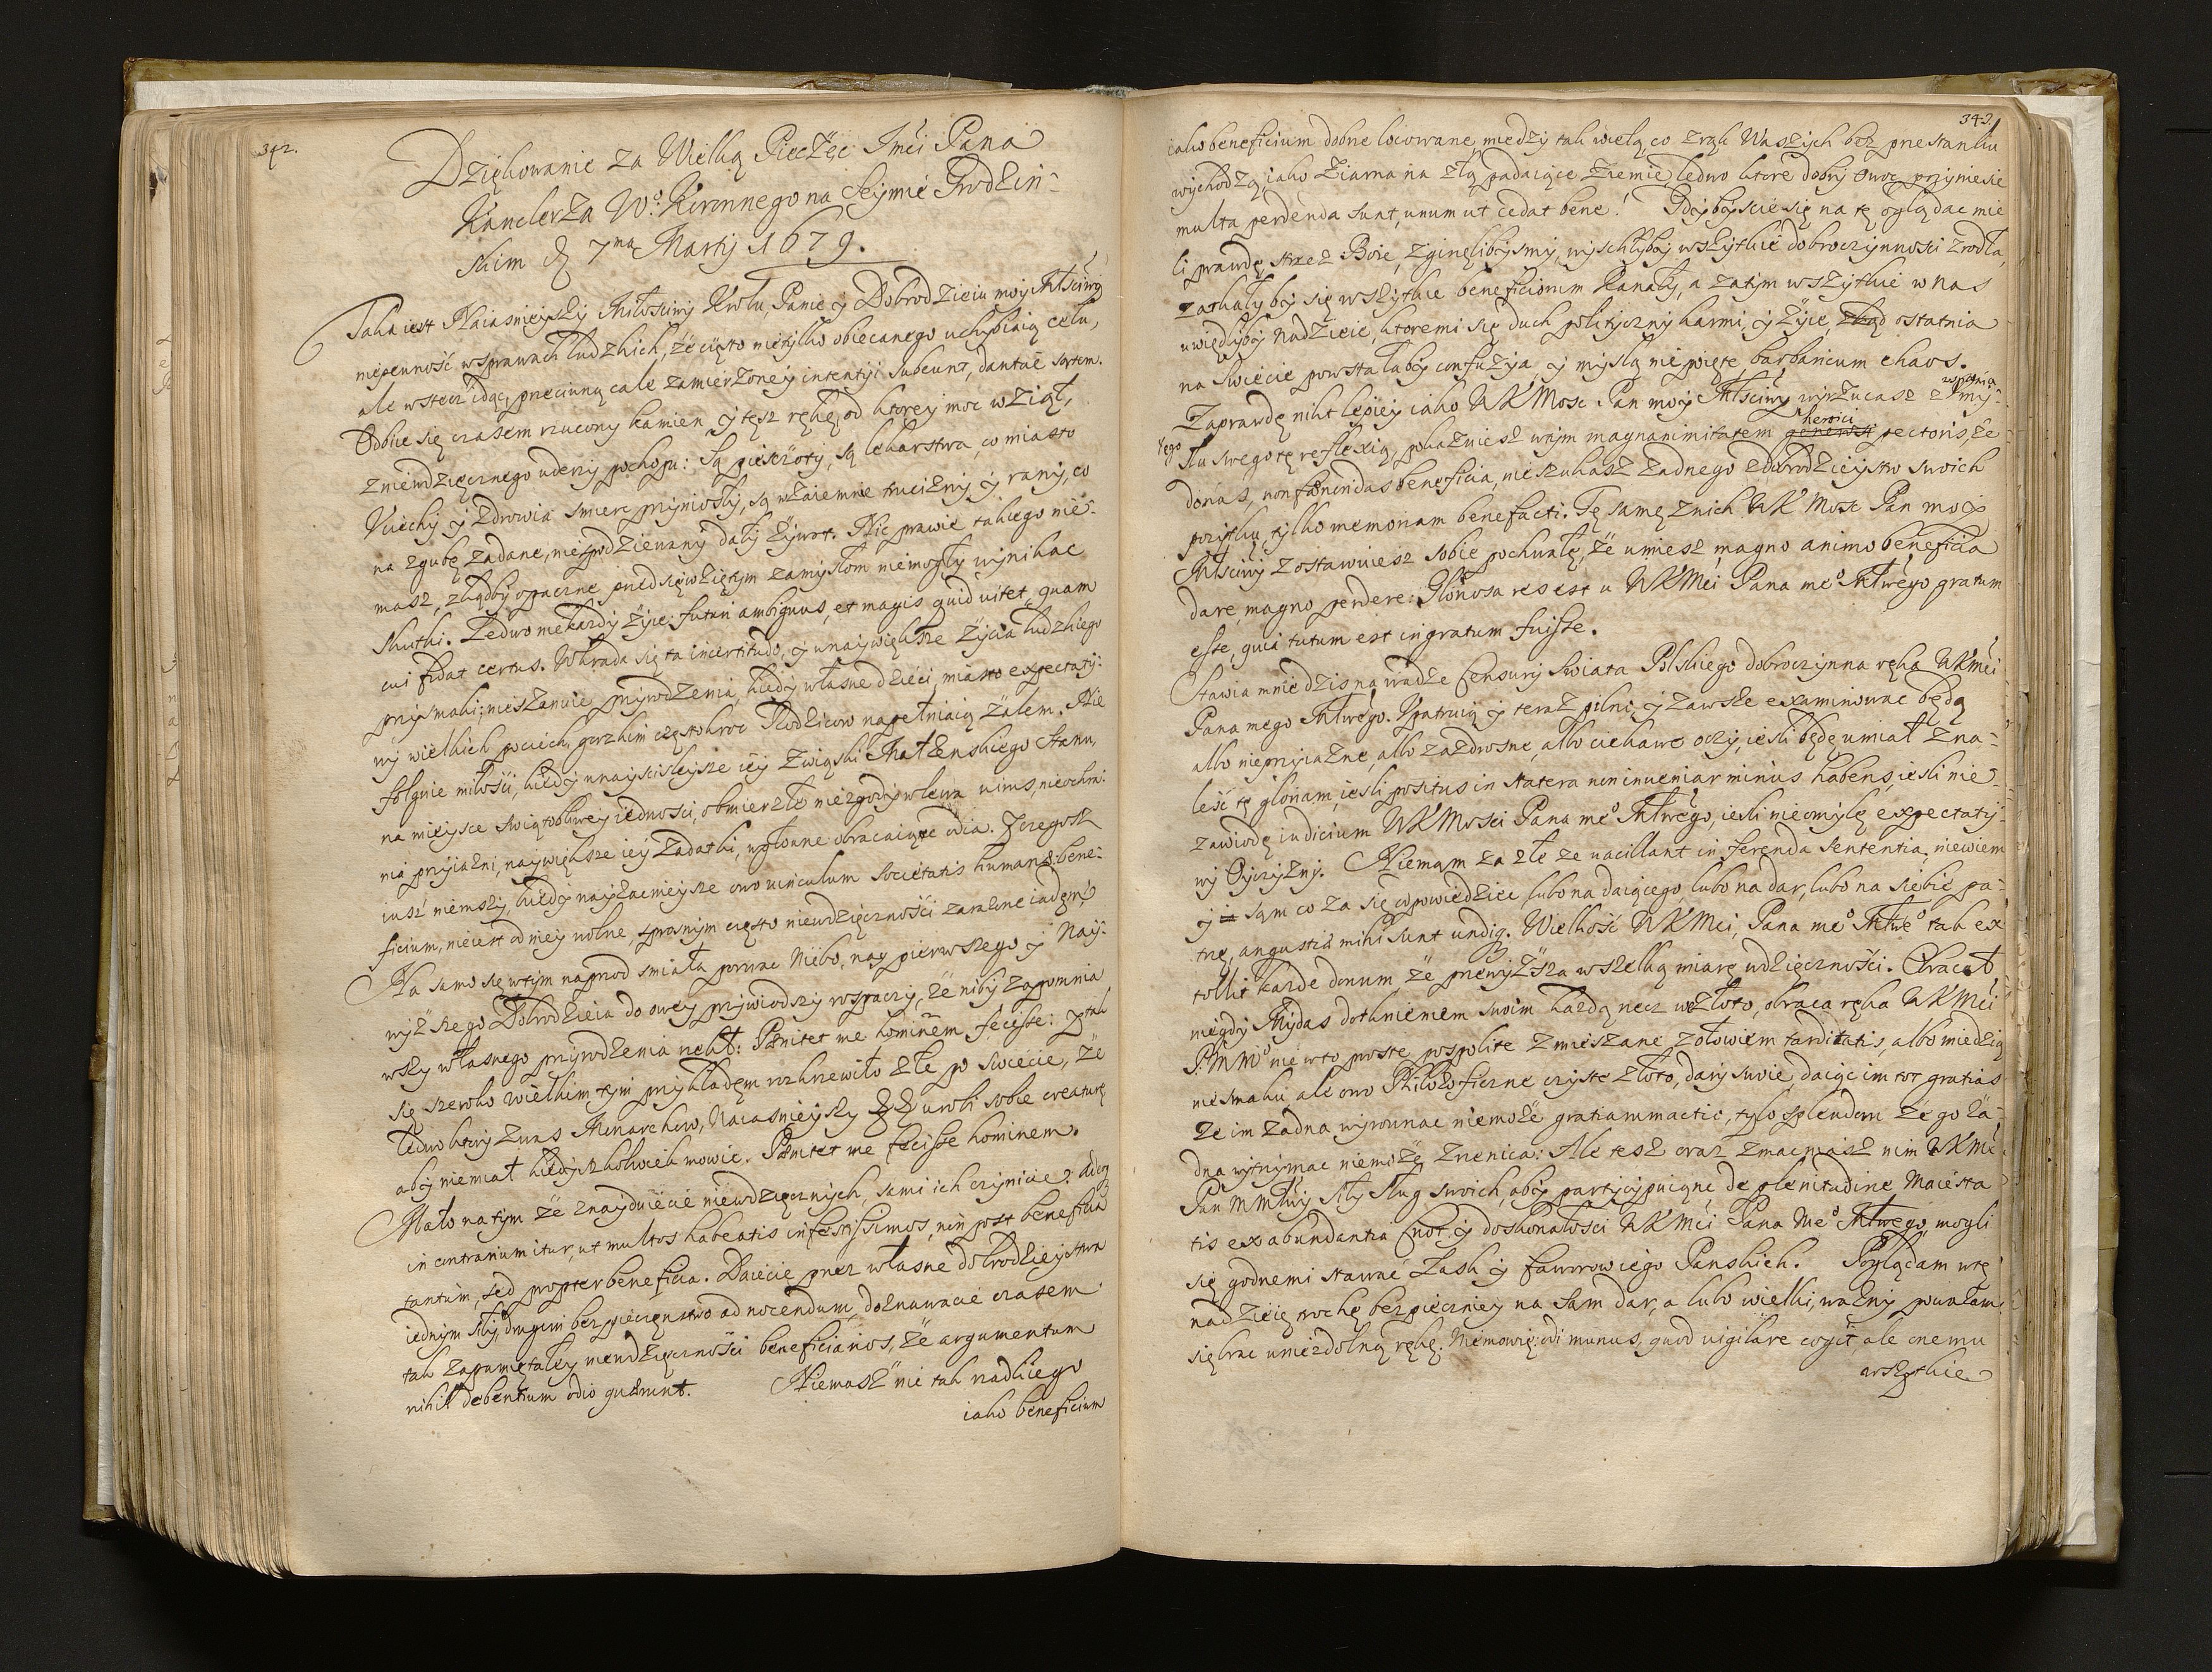 342.
Dziękowanie za Wielką Pieczęc Jmći Pana
Kanclerza W.º Koronnego na Seymie Grodzin-
skim d. 7ma Martij 1679.
Taka iest Naiasnieyszy Miłosciwy Krolu, Panie y Dobrodzieiu moy Młsciwy
niepewność w sprawach ludzkich, że często nietylko obiecanego uchybiaią celu,
ale wstecz idąc, przeciwną cale zamierzoney intentiji subeunt, dantue sortem.
Odbiie się czasem rzucony kamien y tęsz rękę, od ktorey moc wziął,
z niewdzięcznego uderzy pochopu: Są pieszczoty, są lekarstwa, co miasto
Uciechy y zdrowia smierc przyniosły, są wzaiemnie trucizny y rany, co
na zgubę zadane, niespodziewany dały żywot. Nic prawie takiego nie-
masz, zkądby opaczne przedsięwziętym zamysłom niemogły wynikac
skutki. Ledwo niekażdy żyie: futuri ambiguus, et magis quid vitet, quam
cui fidat certus. Wkrada się ta incertitudo, y w naywiększe życia ludzkiego
przysmaki; nieszanuie przyrodzenia, kiedy własne dzieci, miasto expectaty-
wy wielkich pociech, gorzkim częstokroc Rodzicow napełniaią żalem. Nie
folguie miłości, kiedy w nayscisleysze iey związki Małżenskiego stanu,
na mieysce swiątobliwey iedności, obmierzłe niezgody wlewa virus, nieochra-
nia przyiaźni, naywiększe iey zadatki, w głowne obracaiące odia. Czegosz
iusz niemszy, kiedy nayzacnieysze owo vinculum societatis humanæ bene-
ficium, nie iest od niey wolne, sprosnym często niewdzięczności zarażone iadem?
Na samo się w tym naprzod smiała porwac Niebo, nay pierwszego y Nay-
wyższego Dobrodzieia do owey przywiodszy rospaczy, że niby zapomnia
wszy własnego przyrodzenia rzekł: Pænitet me hominem fecisse: Y tak
się szeroko wielkim tym przykładem rozkrzewiło złe po swiecie, że
ledwo ktory z was Monarchow, Naiasnieyszy urobi sobie creaturę
aby niemiał kiedyszkolwiek mowic. Pænitet me fecisse hominem.
Mało na tym że znayduiecie niewdzięcznych, sami ich czynicie: adeoq
in contrarium itur, ut multos habeatis infestissimos, non post beneficia
tantum, sed propter beneficia. Daiecie przez własne dobrodzieystwa
iednym siły, drugim bezpieczenstwo ad nocendum, doznawacie czasem
tak zapamiętałey niewdzięczności beneficiarios, że argumentum
nihil debentium odio quærunt. Niemasz nic tak rzadkiego
iako beneficium
343.
iako beneficium dobrze locowane, miedzy tak wielą co z rąk Waszych bez przestanku
wychodzą, iako ziarna na złą padaiące ziemie, ledwo ktore dobry owoc przyniesie
multa perdenda sunt, unum ut cedat bene! Gdybyscie się na tę oglądac mie
li prawdę, strzez Boże, zginęlibysmy, wyschłyby wszytkie dobroczynności zrodła,
zatkałyby się wszytkie beneficiorum kanały, a zatym wszytkie w nas
uwiędłyby nadzieie, ktoremi się duch polityczny karmi, y żyie, zkąd ostatnia
na swiecie powstałaby confuzya, y myslą nie poięte, barbaricum chaos.
Zaprawdę nikt lepiey iako WKMosc Pan moy Młsciwy wyrzucasz z my-
słu swego tę reflexią, pokazuiesz w nim magnanimitatem heroici pectoris, że
donas, non fænerdas beneficia, nieszukasz żadnego z dobrodzieystw swoich
pożytku, tylko memoriam benefacti. Tę samę z nich WKMosc Pan moy
Młsciwy zostawuiesz sobie pochwałę, że umiesz magno animo beneficia
dare, magno perdere: Gloriosa res est u WKMci Pana meº Młwego gratum
esse, quia tutum est ingratum fuisse.
Stawia mnie dzis na wadze Censury swiata Polskiego dobroczynna ręka WKMci
Pana mego Młwego. Upatruią y teraz pilni, y zawsze examinowac będą
albo nieprzyiazne, albo zazdrosne, albo ciekawe oczy, iesli będę umiał zna-
leść tę gloriam, iesli positus in statera non inveniar minus habens, iesli nie
zawiodę iudicium WKMosci Pana meº Młwego, iesli nieomylę expectaty-
wy Oyczyzny. Niemam za złe ze vacillant in ferenda sententia, niewiem
y sam co za się odpowiedziec lubo na daiącego, lubo na dar, lubo na siebie pa-
trzę, angustiæ mihi sunt undiq. Wielkość WKMci, Pana meº Młweº tak ex
tollit każde donum że przewyższa wszelką miarę wdzięczności. Obracał
niegdy Mydas dotknieniem swoim każdą rzecz w złoto, obraca ręka WKMci
P. M Mº nie w to proste pospolite zmieszane z ołowiem tarditatis, albo miedzią
niesmaku, ale owo Philozoficzne czyste złoto, dary swoie, daiąc im tot gratias
że im żadna wyrownac niemoże gratiarum actio, tylo splendoru że go ża-
dna wytrzymac niemoże zrzenica: Ale tesz oraz zmacniasz nim WKMć
Pan MMłwy siły sług swoich, aby partycypuiąc de plenitudine Maiesta
tis ex abundantia Cnot y doskonałości WKMci Pana Meº Młwego, mogli
się godnemi stawać Łask y faworow iego Panskich. Poglądam w tę
nadzieię trochę bezpieczniey na sam dar, a lubo wielki, ważny poważam
się brac w niezdolną rękę. Niemowię: odi munus, quod vigilare cogit, ale onemu
wszytkie